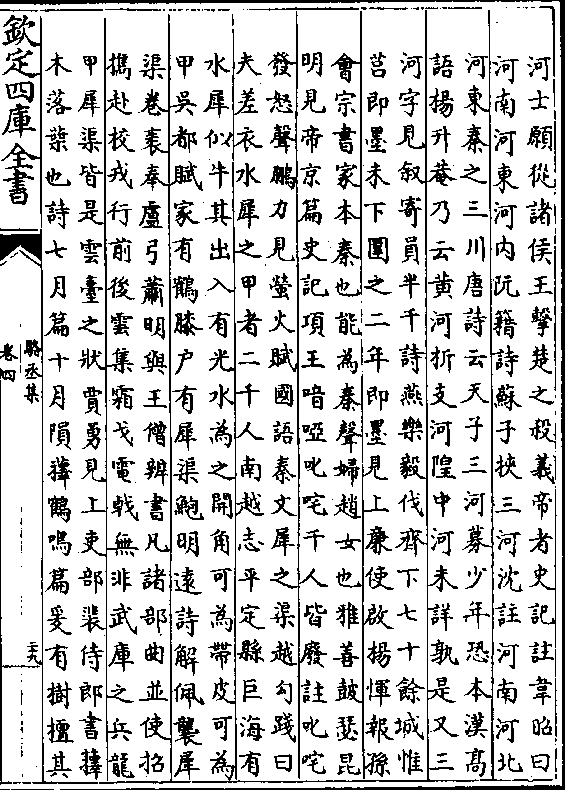 河士願從諸侯王擊楚之殺義帝者史記註韋昭曰
河南河東河内阮籍詩蘇子挾三河沈註河南河北
河東秦之三川唐詩云天子三河募少年恐本漢髙
語揚升菴乃云黄河折支河隍中河未詳孰是又三
河字見叙寄員半千詩燕樂毅伐齊下七十餘城惟
莒即墨未下圍之二年即墨見上廉使啟楊惲報孫
㑹宗書家本秦也能為秦聲婦趙女也雅善鼓瑟昆
明見帝京篇史記項王喑啞叱咤千人皆廢註叱咤
發怒聲鵬力見螢火賦國語秦文犀之渠越勾踐曰
夫差衣水犀之甲者二千人南越志平定縣巨海有
水犀似牛其出入有光水為之開角可為帶皮可為
甲吳都賦家有鶴膝户有犀渠鮑明逺詩解佩襲犀
渠卷袠奉盧弓蕭明與王僧辨書凡諸部曲並使招
攜赴校戎行前後雲集霜戈電戟無非武庫之兵龍
甲犀渠皆是雲臺之狀賈勇見上吏部裴侍郎書蘀
木落葉也詩七月篇十月隕蘀鶴鳴篇爰有樹檀其
欽定四庫全書
駱丞集
卷四
二十九